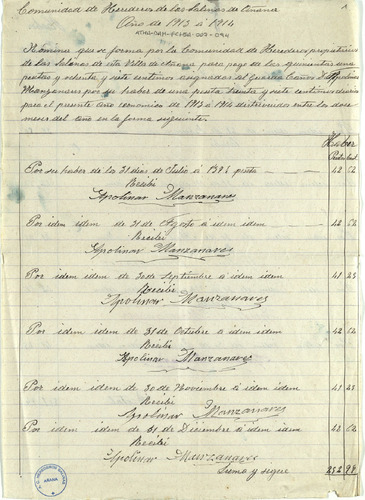 Comunidad de Herederos de las Salinas de Añana
Año de 1913 á 1914
Nómina que se forma por la Comunidad de Herederos propietarios
de las Salinas de esta Villa de Añana para pago de las quinientas una
pesetas y ochenta y siete centimos asignadas al guarda Caños Apolinar
Manzanares por su haber de una peseta treinta y siete centimos diarios
para el presente año económico de 1913 á 1914 distribuidos entre los doce
meses del año en la forma siguiente.
Haber
Por su haber de los 31 dias de Julio á 1'37 1/2 pesetas 42 62
Recibí
Apolinar Manzanares
Por idem idem de 31 de Agosto á idem idem 42 62
Recibí
Apolinar Manzanares
Por idem idem de 30 de Septiembre á idem idem 41 25
Recibí
Apolinar Manzanares
Por idem idem de 31 de Octubre á idem idem 42 62
Recibí
Apolinar Manzanares
Por idem idem de 30 de Noviembre á idem idem 41 25
Recibí
Apolinar Manzanares
Por idem idem de 31 de Diciembre á idem idem 42 62
Recibí
Apolinar Manzanares
Suma y sigue 252 98
AÑANA